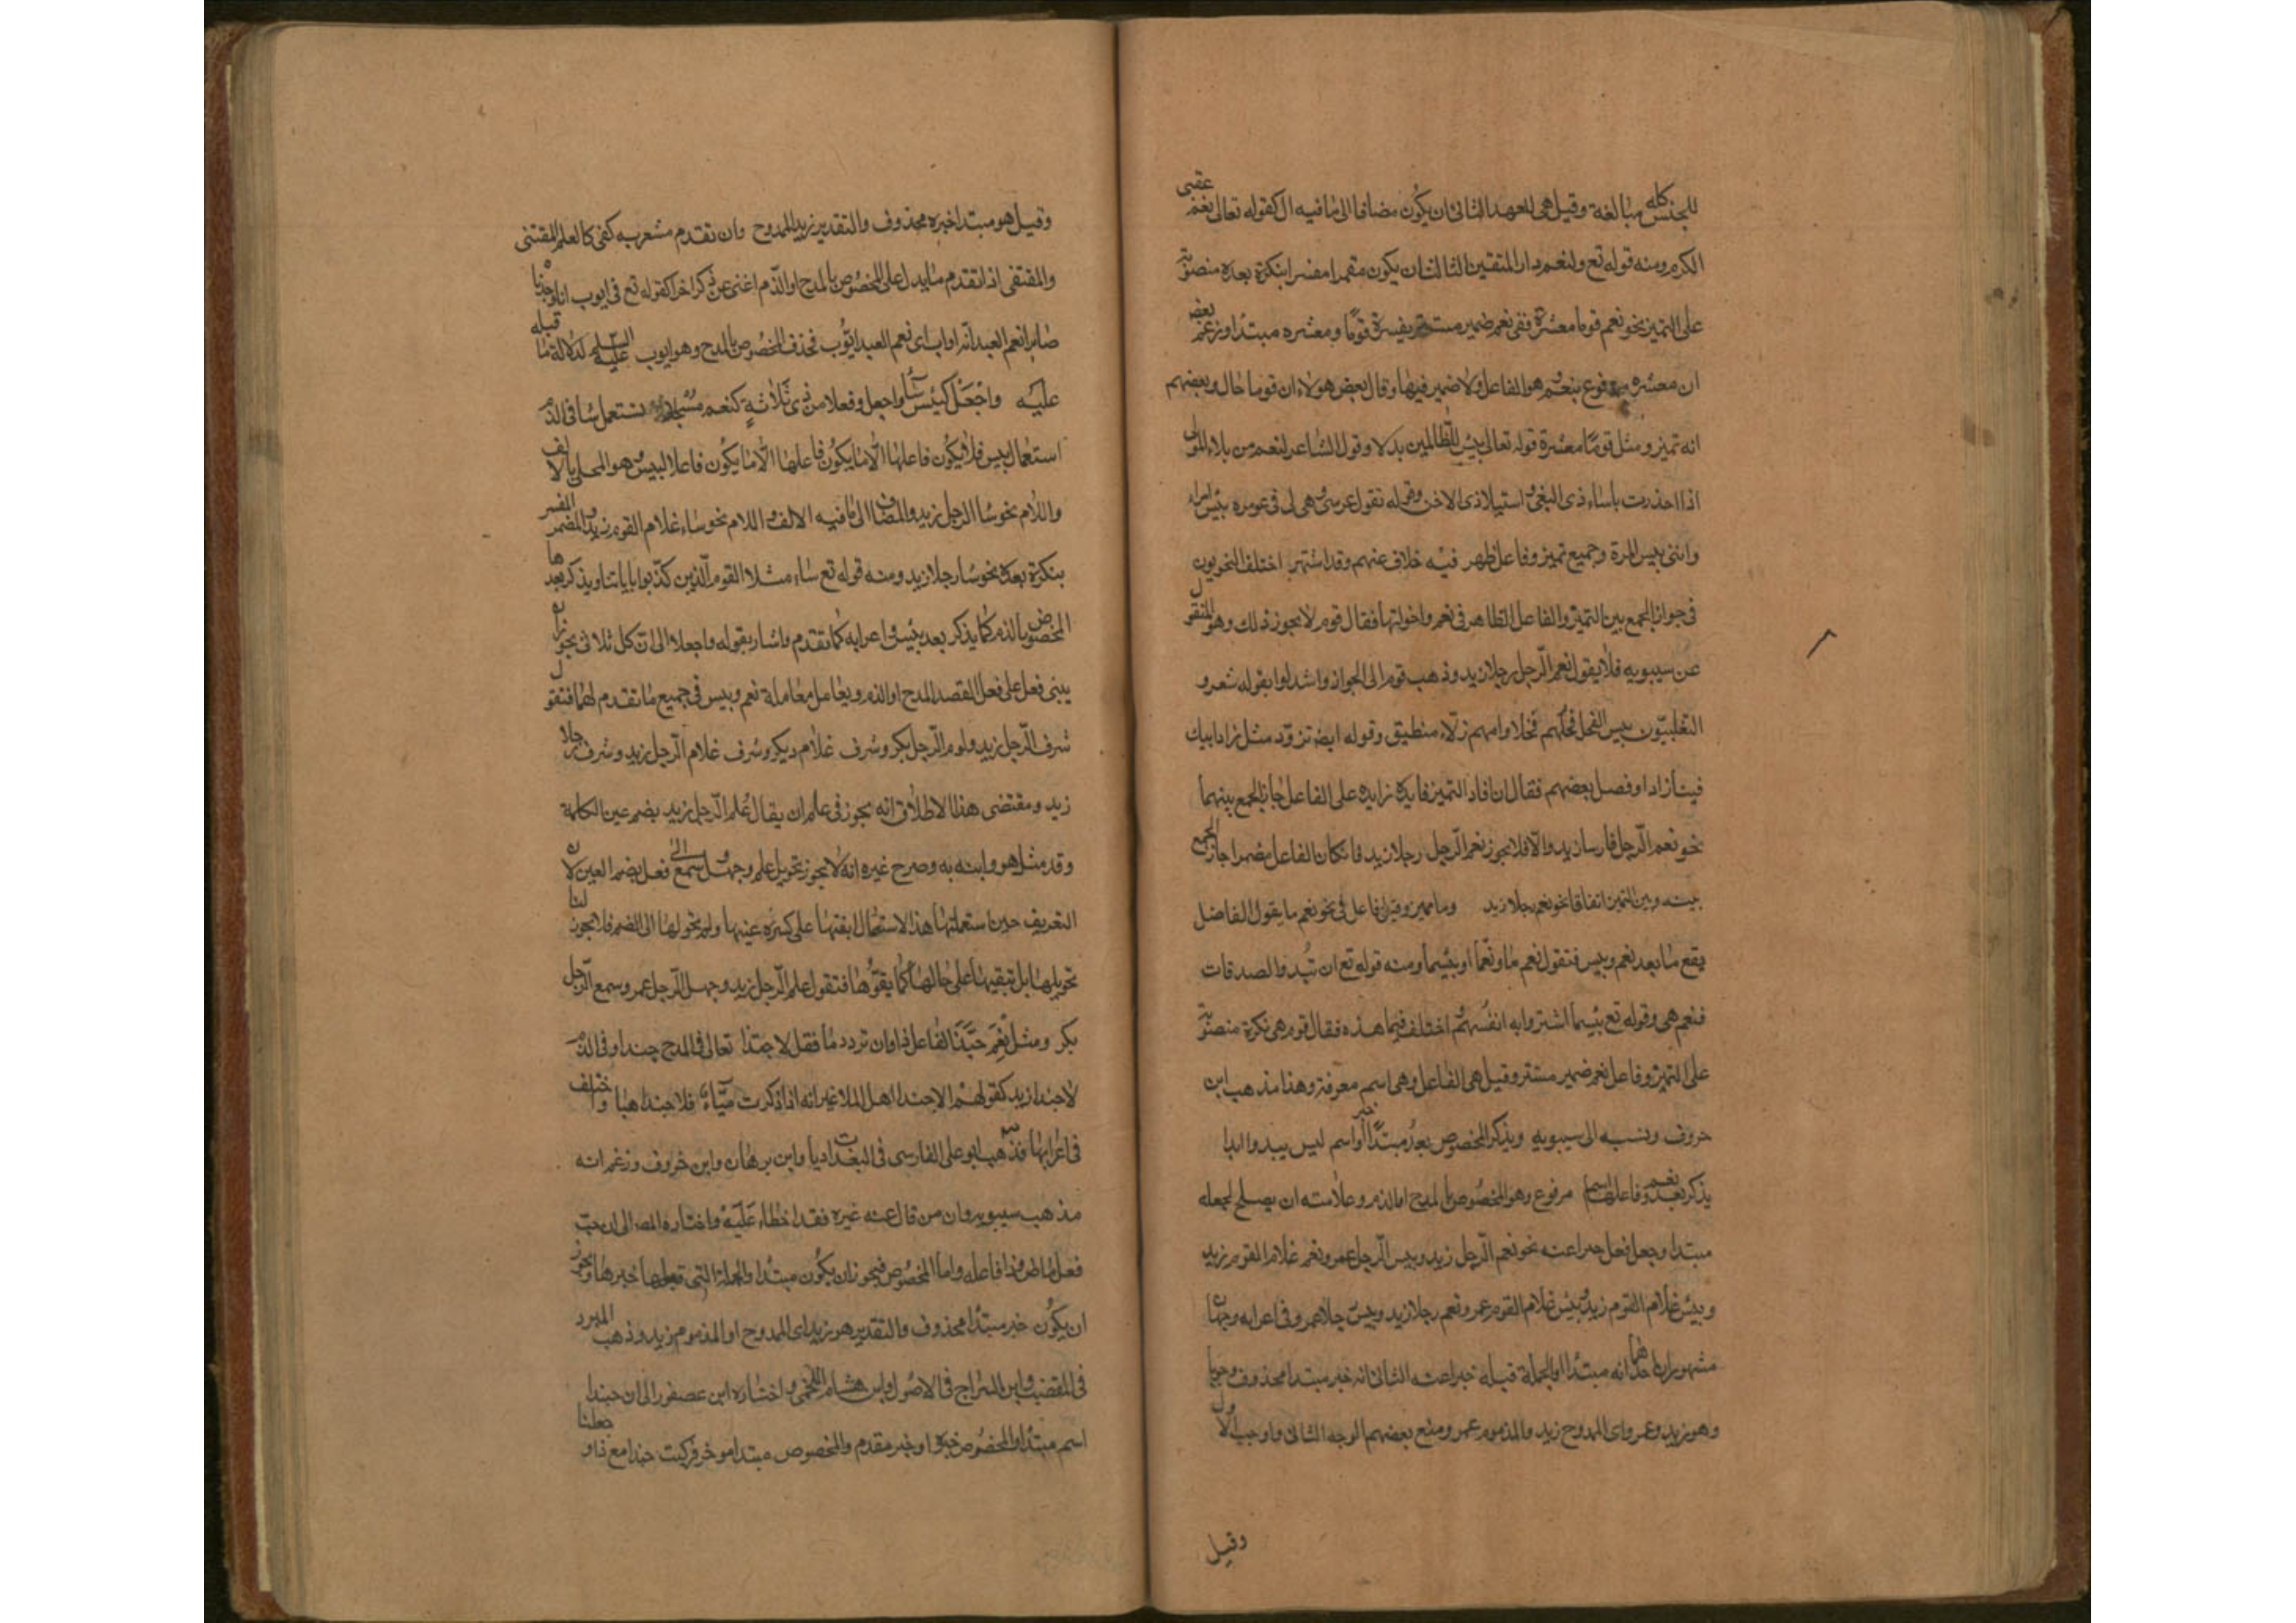 للجنس كله مبالغة وقيل هى للعهد الثانى ان يكون مضافا الى ما فيه ال كقوله تعالى نعم عقبى
الكرم ومنه قوله تع ولنعم دار المتقين الثالث ان يكون مضمرا مفسرا بنكرة بعده منصوبة
على التميز نحو نعم قوما معشره ففى نعم ضمير مستتر يفسره قوما ومعشره مبتدا وزعم بعضهم
ان معشره مرفوع بنعم وهو الفاعل ولا ضمير فيها وقال بعض هولاء ان قوما حال وبعضهم
انه تميز ومثل قوما معشره قوله تعالى بيس للظالمين بدلا وقول الشاعر لنعم من بلا المولى
اذا احذرت باساء ذى البغى واستيلا ذى الاحن وقوله تقول عرسى وهى لى فى عومره بئس امراء
واننى بيس المرة وجميع تميز وفاعل ظهر فيه خلاف عنهم وقد اشتهر اختلف النحويون
فى جواز الجمع بين التميز والفاعل الظاهر فى نعم واخواتها فقال قوم لا يجوز ذلك وهو المنقول
عن سيبويه فلا يقول نعم الرجل رجلا زيد وذهب قوم الى الجواز واشدلوا بقوله شعر و
التغلبيون بيس الفحل فحلهم فحلا وامهم زلاء منطيق وقوله ايضا تزود مثل زاد ابيك
فينا زادا وفصل بعضهم فقال ان افاد التميز فايدة زايدة على الفاعل جاز الجمع بينهما
نحو نعم الرجل فارسا زيد والا فلا يجوز نعم الرجل رجلا زيد فان كان الفاعل مضمرا جاز الجمع
بينه وبين التميز اتفاقا نحو نعم رجلا زيد وما مميز وقيل فاعل فى نحو نعم ما يقول الفاضل
يقع ما بعد نعم وبيس فتقول نعم ما ونعما او بئسما ومنه قوله تع ان تبدوا الصدقات
فنعم هى وقوله تع بئسما اشتروا به انفسهم اختلف فيما هذه فقال قوم هى نكرة منصوبة
على التميز وفاعل نعم ضمير مستتر وقيل هى الفاعل وهى اسم معرفة وهذا مذهب ابن
خروف ونسبه الى سيبويه ويذكر المخصوص بعد مبتدا او خبر اسم ليس يبدوا ابدا
يذكر بعد نعم وفاعلها اسم مرفوع وهو المخصوص بالمدح او الذم وعلامته ان يصلح لجعله
مبتدا وجعل فعل خبرا عنه نحو نعم الرجل زيد وبيس الرجل عمرو نعم غلام القوم زيد
وبيس غلام القوم زيد وبئس غلام القوم عمر ونعم رجلا زيد وبيس رجلا عمرو وفى اعرابه وجهان
مشهوران احدهما انه مبتدا والجملة قبله خبر اعنه الثانى انه خبر مبتدا محذوف وجوبا
وهو زيد وعمر واى الممدوح زيد والمذموم عمر ومنع بعضهم الوجه الثانى واوجب الاول
وقيل
وقيل هو مبتدا خبره محذوف والتقدير زيد الممدوح وان تقدم مشعر به كفى كالعلم المقتنى
والمقتفى اذا تقدم ما يدل على المخصوص بالمدح او الذم اغنى عن ذكر اخرا كقوله تع فى ايوب انا وجدناه
صابرا نعم العبد انه اواب اى نعم العبد ايوب فحذف المخصوص بالمدح وهو ايوب عليه السلم لدلالة ما قبله
عليه واجعل كبئس ساء واجعل وفعلا من ذى ثلاثة كنعم مسجلا تستعمل ساء فى الذم
استعمال بيس فلا يكون فاعلها الا ما يكون فاعلها الا ما يكون فاعلا لبيس وهو المحلى بالالف
واللام نحو ساء الرجل زيد والمضاف الى ما فيه الالف واللام نحو ساء غلام القوم زيد والمضمر المفسر
بنكرة بعده نحو ساء رجلا زيد ومنه قوله تع ساء مثلا القوم الذين كذبوا باياتنا ويذكر بعدها
المخصوص بالذم كما يذكر بعد بيس واعرابه كما تقدم واشار بقوله واجعلا الى ان كل ثلاثى يجوز ان
يبنى فعل على فعل لقصد المدح او الذم ويعامل معاملة نعم وبيس فى جميع ما تقدم لهما فتقول
شرف الرجل زيد ولوم الرجل بكر وشرف غلام ديكر وشرف غلام الرجل زيد وشرف رجلا
زيد ومقتضى هذا الاطلاق انه يجوز فى علم ان يقال علم الرجل زيد بضم عين الكلمة
وقد مثل هو وابنه به وصرح غيره انه لا يجوز تحويل علم وجهل وسمع الى فعل بضم العين لان
التعريف حين استعملتها هذا الاستعمال ابقتها على كسرة عينها ولم تحولها الى الضم فلا يجوز لنا
تحويلها بل تبقيها على حالها كما بقوها فتقول علم الرجل زيد وجهل الرجل عمر وسمع الرجل
بكر ومثل نعم حبذا الفاعل ذا وان ترد ذما فقل لا حبذا تعالى فى المدح حبذا وفى الذم
لا حبذا زيد كقولهم الا حبذا اهل الملا غير انه اذا ذكرت مياء فلا حبذا هيا واختلف
فى اعرابها فذهب ابو على الفارسى فى البغداديات وابن برهان وابن خروف وزعم انه
مذهب سيبويه وان من قال عنه غيره فقد اخطاء عليه واختاره المص الى ان حب
فعل ماض وذا فاعله واما المخصوص فيجوز ان يكون مبتدا والجملة التى قبلها خبرها ويجوز
ان يكون خبر مبتدا محذوف والتقدير هو زيد اى الممدوح او المذموم زيد وذهب المبرد
فى المقتضب وابن السراج فى الاصول وابن هشام اللخمى واختاره ابن عصفور الى ان حبذا
اسم مبتدا والمخصوص خبره او خبر مقدم والمخصوص مبتدا موخر فركبت حبذا مع ذا وجعلتا